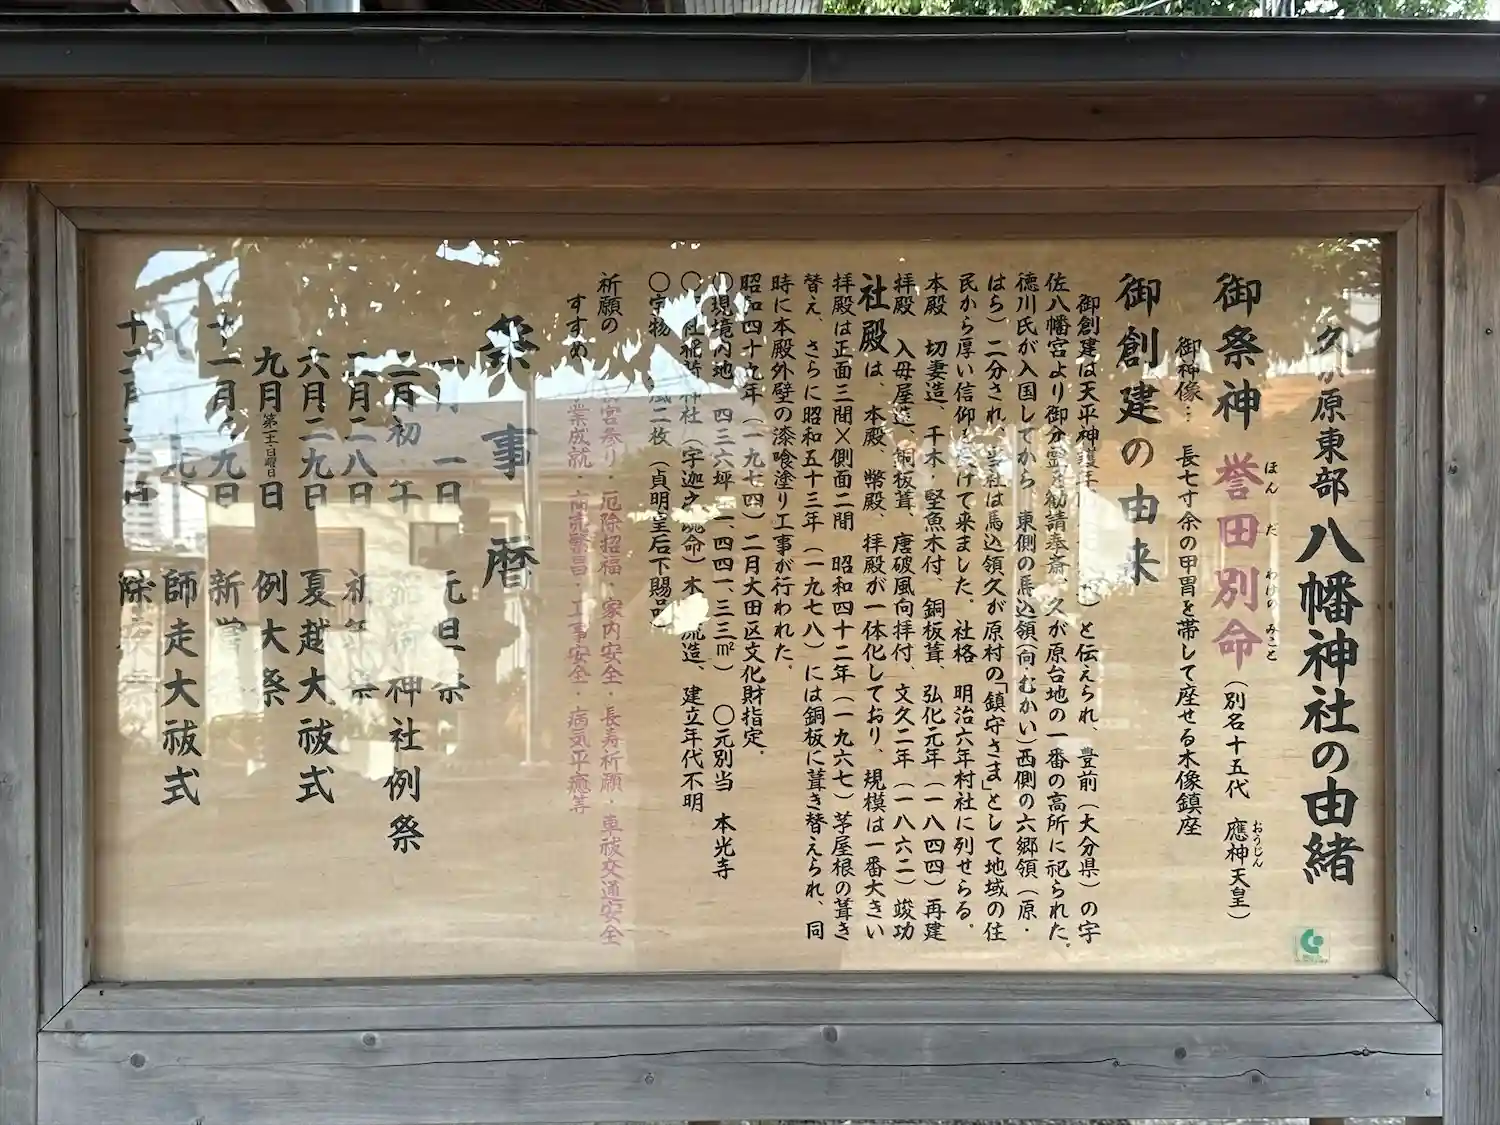 久が原東部八幡神社の由緒
御祭神 誉田別命（別名十五代 應神天皇）
ほんだわけのみこと
おうじん
御神像… 長七寸余の甲冑を帯して座せる木像鎮座
御創建の由来
御創建は天平神護 と伝えられ、豊前（大分県）の宇
佐八幡宮より御分霊を勧請奉斎、久が原台地の一番の高所に祀られた。
徳川氏が入国してから、東側の馬込領（向・むかい）西側の六郷領（原・
はら）二分され、当社は馬込領久が原村の「鎮守さま」として地域の住
民から厚い信仰を受けて来ました。社格 明治六年村社に列せらる。
本殿 切妻造、千木・堅魚木付、銅板葺、弘化元年（一八四四）再建
拝殿 入母屋造、銅板葺 唐破風向拝付、文久二年（一八六二）竣功
社殿は、本殿、幣殿、拝殿が一体化しており、規模は一番大きい
拝殿は正面三間×側面二間 昭和四十二年（一九六七）茅屋根の葺き
替え、さらに昭和五十三年（一九七八）には銅板に葺き替えられ、同
時に本殿外壁の漆喰塗り工事が行われた。
昭和四十九年（一九七四）二月大田区文化財指定。
〇現境内地 四三六坪 一、四四一、三三㎡） 〇元別当 本光寺
〇 社稲荷神社（宇迦之 命）木 流造、建立年代不明
〇宇物 二枚（貞明皇后下賜品）
祈願の
すすめ
宮参り・厄除招福・家内安全・長寿祈願・車祓交通安全
業成就・商売繁昌・工事安全・病気平癒等
祭事暦
一月一日 元旦祭
二月初午 稲荷神社例祭
二月二八日 祈年祭
六月二九日 夏越大祓式
九月第二土・日曜日 例大祭
十一月 九日 新嘗
師走大祓式
十二月三一日 除夜祭